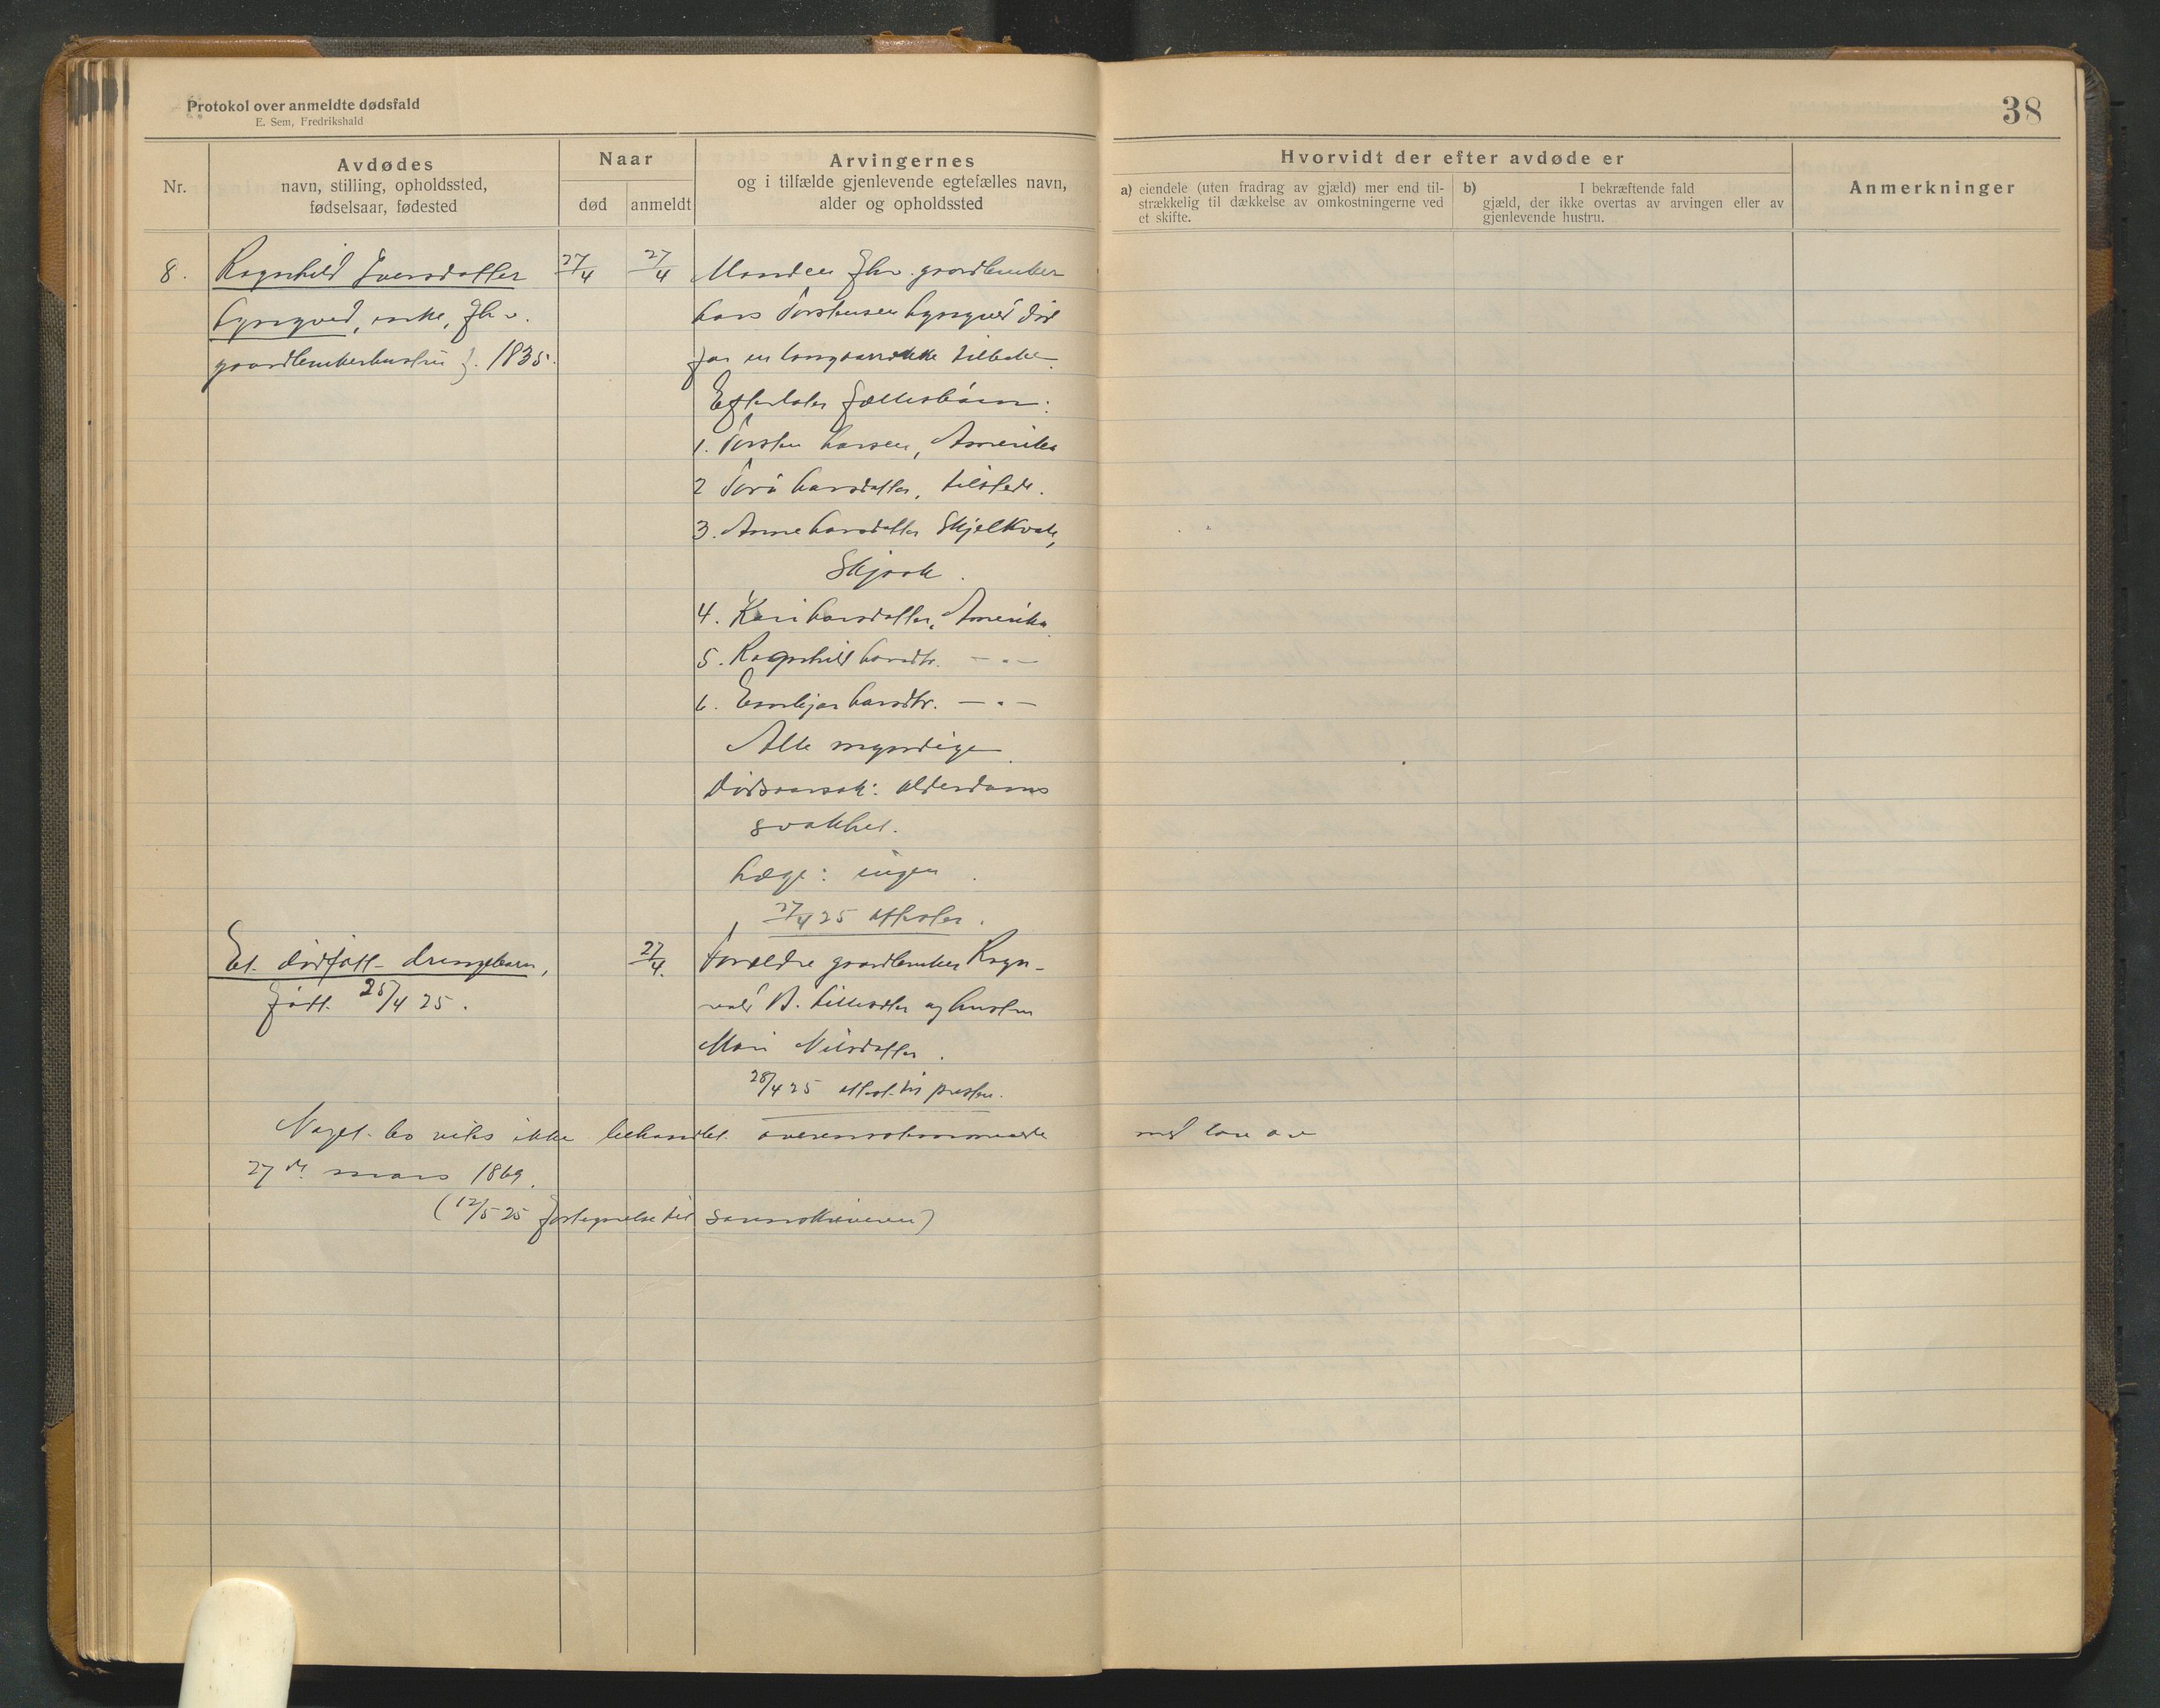 Protokol over anmeldte dødsfald
E. Sem, Fredrikshald
38
Nr.
Avdødes
navn, stilling, opholdssted,
fødselsaar, fødested
Naar
død
anmeldt
Arvingernes
og i tilfælde gjenlevende egtefælles navn,
alder og opholdssted
Hvorvidt der efter avdøde er
a) eiendele (uten fradrag av gjæld) mer end til-
strækkelig til dækkelse av omkostningerne ved
et skifte.
b) I bekræftende fald
gjæld, der ikke overtas av arvingen eller av
gjenlevende hustru.
Anmerkninger
8. Ragnhild Iversdatter
Lyngved, enke, fhv.
gaardbrukerhustru f. 1835.
27/4
27/4
Manden fhv. gaardbruker
Lars Torstensen Lyngved død
for en lang tilbake.
Efterlater fællesbarn:
1. Torsten Larsen, Amerika
2 Tora Larsdatter, tilstede.
3. Anne Larsdatter Skjelkvale,
Skjaak.
4. Kari Larsdatter, Amerika
5. Ragnhild Larsdtr. — " —
6. Larsdtr. — " —
Alle myndige
Dødsaarsak: alderdoms
svakhet.
Læge: ingen.
27/4 25 attester.
Et dødfødt drengebarn,
født 25/4 25.
27/4.
Forældre gaardbruker Ragn-
vald B. og hustru
Mari Nilsdatter.
28/4 25 attest til presten.
Noget bo vites ikke behandlet overensstemmende med lov av
27de mars 1869.
(12/5 25 fortegnelse til sorenskriveren)